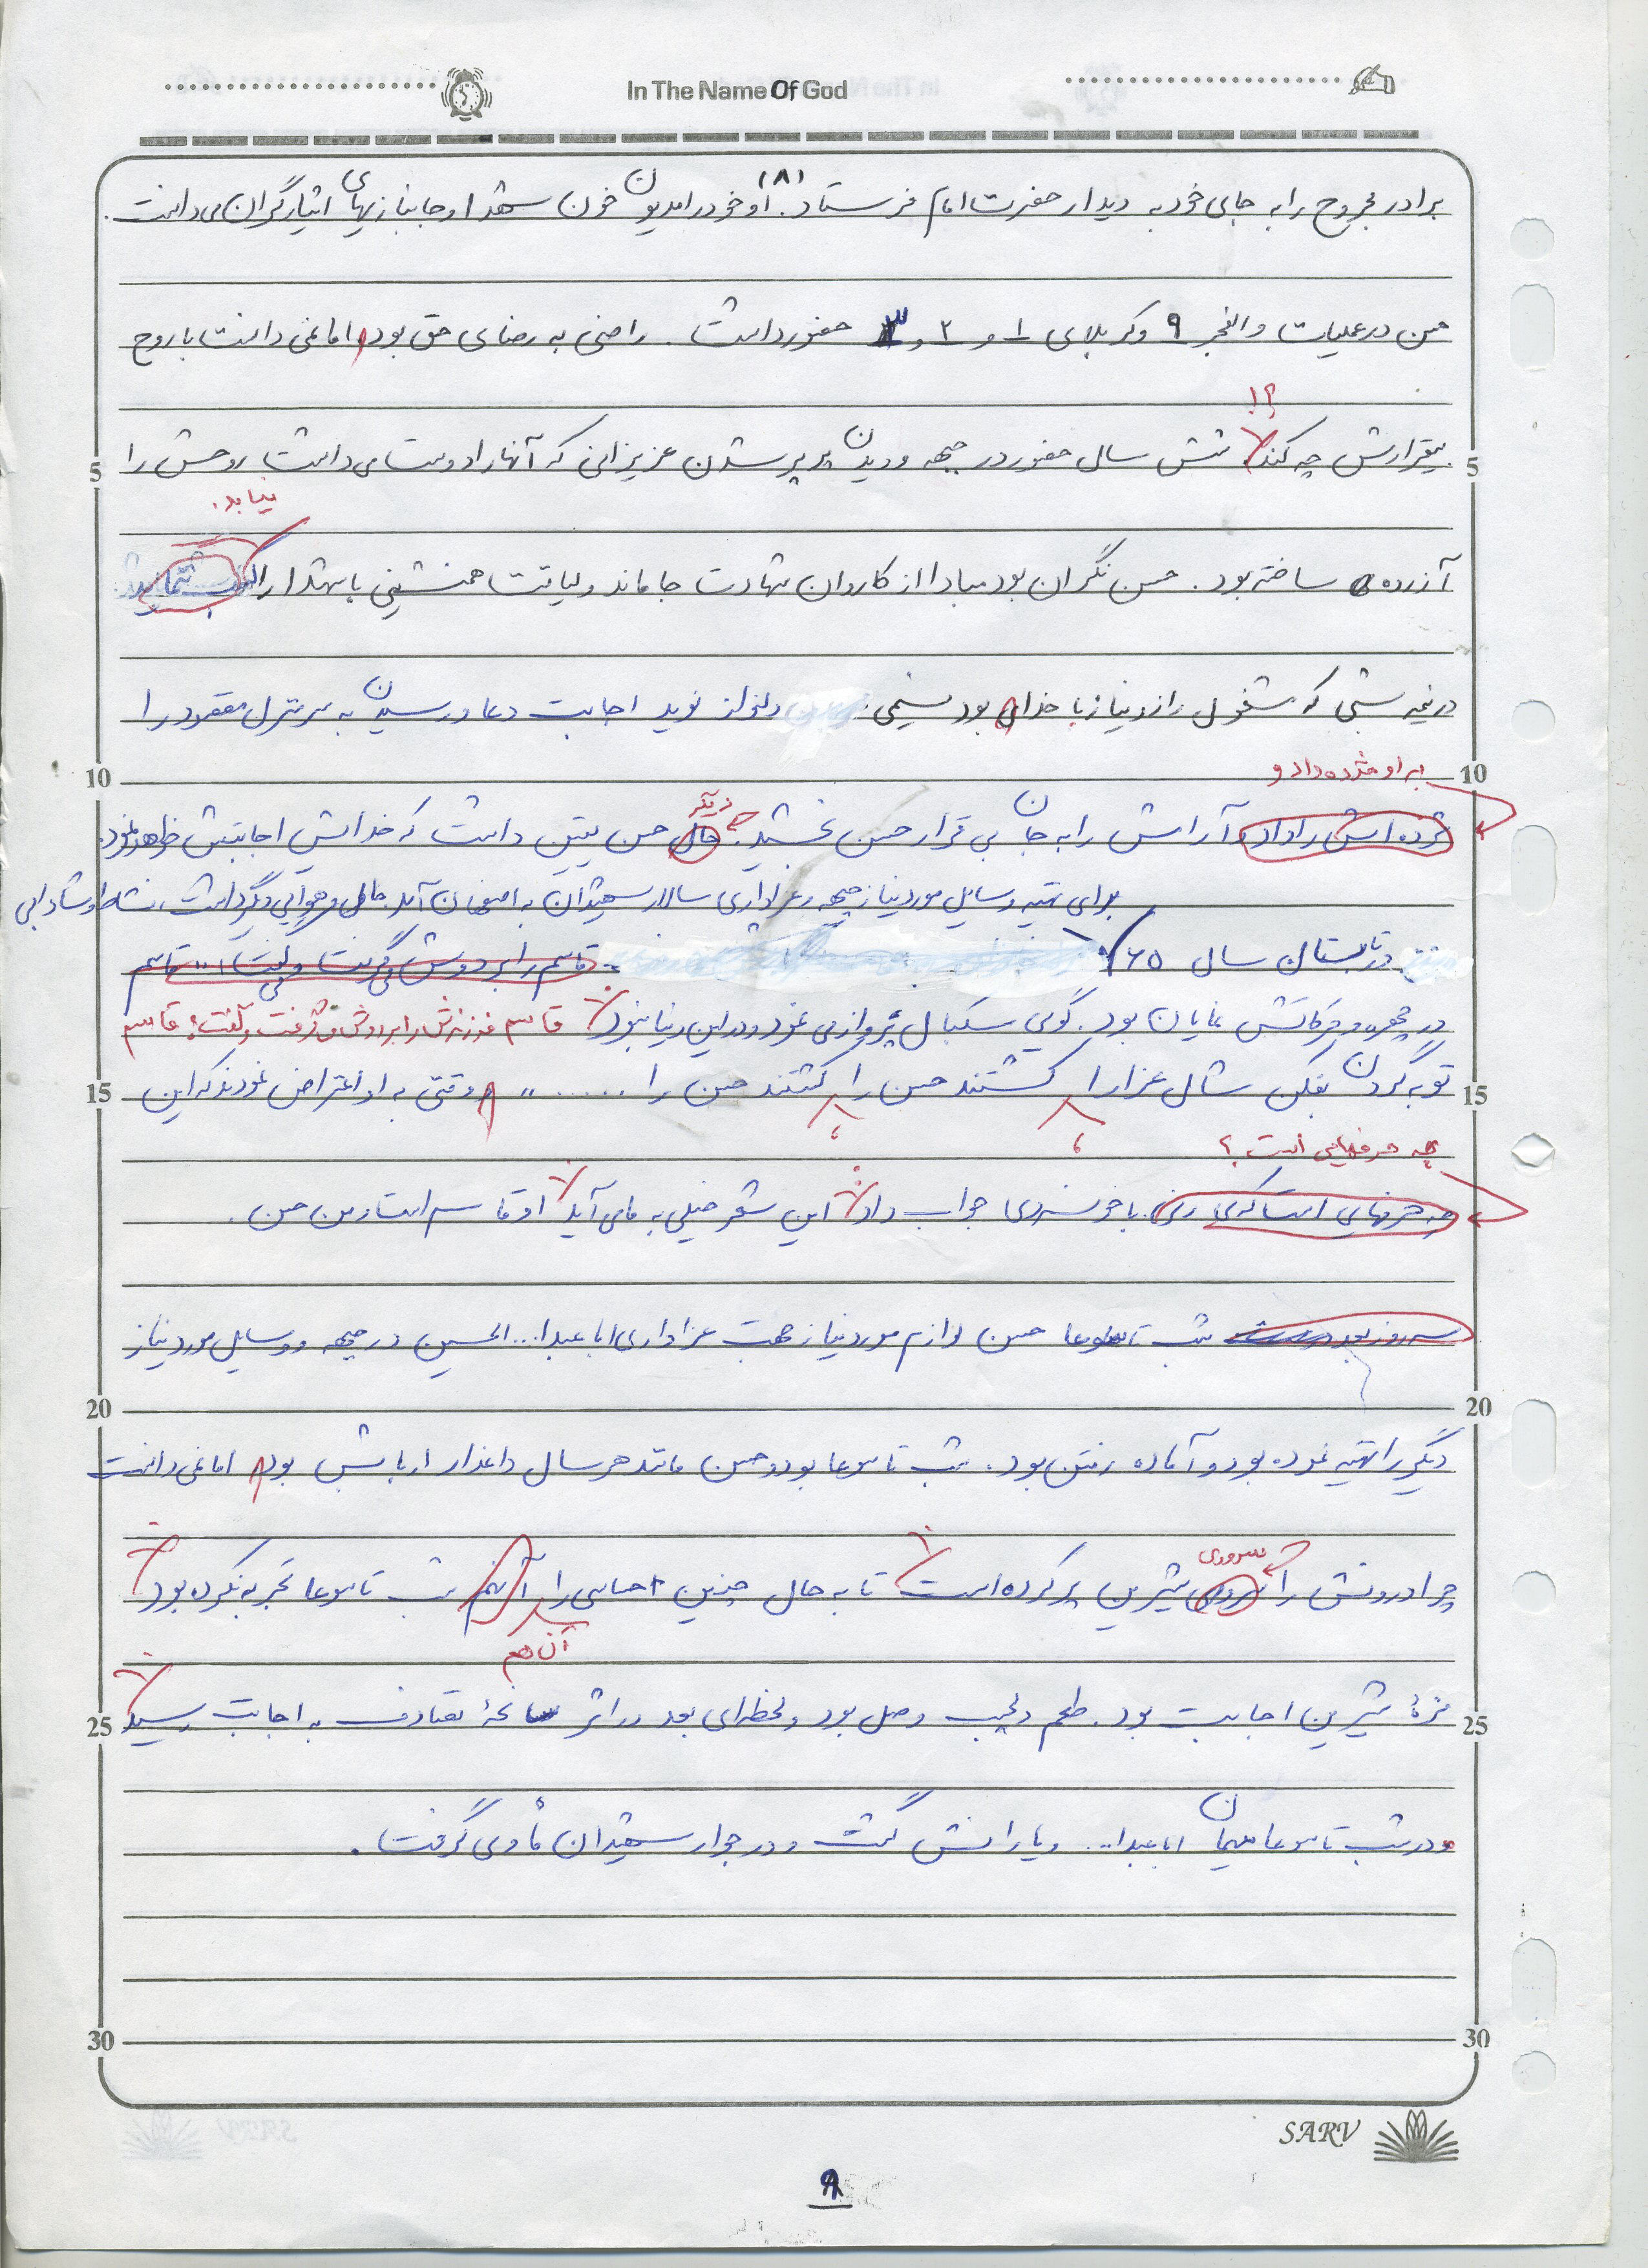 In The Name Of God
(۸)
برادر مجروح را به جای خود به دیدار حضرت امام فرستاد. او خود را مدیون خون شهدا و جانبازیهای ایثارگران می‌دانست.
حسن در عملیات والفجر ۹ و کربلای ۱ و ۲ و ۳ حضور داشت. راضی به رضای حق بود اما نمی دانست با روح
؟!
بیقرارش چه کند شش سال حضور در جبهه و دیدن پرپر شدن عزیزانی که آنها را دوست می داشت روحش را
5 5
نیابد.
آزرده ساخته بود. حسن نگران بود مبادا از کاروان شهادت جا ماند و لیاقت همنشینی با شهدا را
در نیمه شبی که مشغول راز و نیاز با خدای بود نسیمی دلنواز نوید اجابت دعا و رسیدن به سرمنزل مقصود را
به او مژده داد و
10 10
مژده اش را داد و آرامش را به جان بی قرار حسن بخشید. حال حسن یقین داشت که خدایش اجابتش خواهد نمود.
دیگر
برای تهیه وسایل مورد نیاز جبهه و عزاداری سالار شهیدان به اصفهان آمد. حال و هوایی دیگر داشت، نشاط و شادابی
در تابستان سال ۶۵ قاسم را بر دوش می گرفت و می گفت: "قاسم
در چهره و حرکاتش نمایان بود. گویی سبکبال پرواز می نمود و در این دنیا نبود. قاسم فرزندش را بر دوش می گرفت و گفت: قاسم
تو به گردن بفکن شال عزا را کشتند حسن را کشتند حسن را ......" وقتی به او اعتراض نمودند که این
15 15
چه حرفهایی است؟
چه حرفهایی است که می زنی. با خونسردی جواب داد: این شعر خیلی به ما می آید. او قاسم است و من حسن.
سه روز بعد شب تاسوعا حسن لوازم مورد نیاز جهت عزاداری اباعبدا... الحسین در جبهه و وسایل مورد نیاز
20 20
دیگر را تهیه نموده بود و آماده رفتن بود. شب تاسوعا بود و حسن مانند هر سال داغدار اربابش بود اما نمی دانست
سروری
چرا درونش را سرور شیرین پر کرده است. تا به حال چنین احساسی را آنهم شب تاسوعا تجربه نکرده بود.
آن هم
مزهٔ شیرین اجابت بود. طعم دلچسب وصل بود و لحظه‌ای بعد در اثر سانحهٔ تصادف به اجابت رسید.
25 25
و در شب تاسوعا میهمان اباعبدا... و یارانش گشت و در جوار شهیدان مأوی گرفت.
30 30
SARV
۹